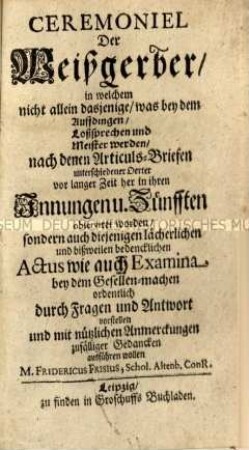 CEREMONIEL
Der
Weißgerber/
in welchem
nicht allein dasjenige/ was bey dem
Auffdingen/
Loßsprechen und
Meister werden/
nach denen Articuls-Briefen
unterschiedener Oerter
vor langer Zeit her in ihren
Innungen u. Zünfften
observirt worden/
sondern auch diejenigen lächerlichen
und bißweilen bedencklichen
Actus wie auch Examina
bey dem Gesellen-machen
ordentlich
durch Fragen und Antwort
vorstellen
und mit nützlichen Anmerckungen
zufälliger Gedancken
ausführen wollen
M. FRIDERICUS FRISIUS, Schol. Altenb. ConR.
Leipzig/
zu finden in Groschuffs Buchladen.